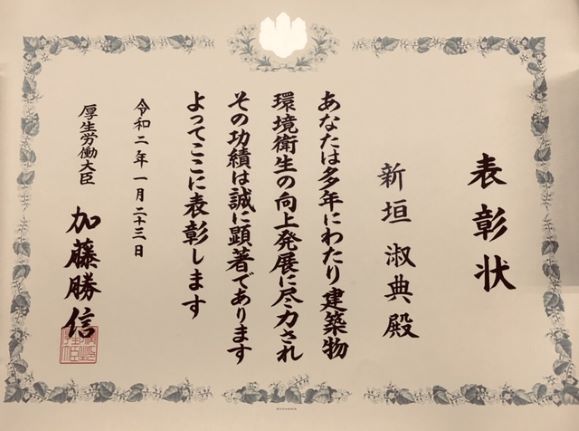 表彰状
新垣 淑典 殿
あなたは多年にわたり建築物
環境衛生の向上発展に尽力され
その功績は誠に顕著であります
よってここに表彰します
令和二年一月二十三日
厚生労働大臣 加藤勝信